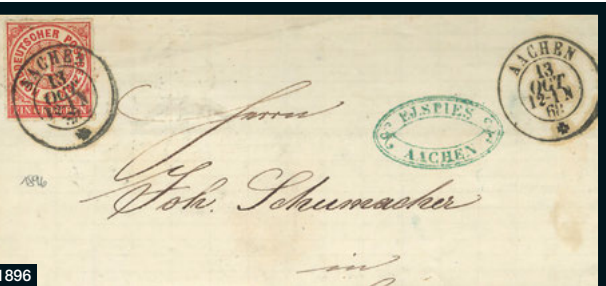 DEUTSCHER
AACHEN
13
OCT
AACHEN
13
OCT
12-1N
F.J.SPIES
AACHEN
Herrn
1896
Joh. Schumacher
in
1896